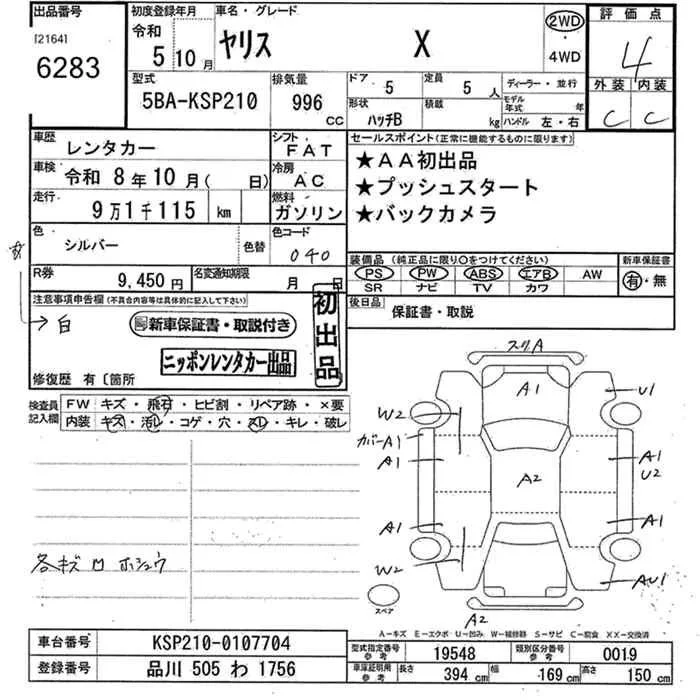 出品番号
[2164]
6283
初度登録年月
令和
5 10 月
車名・グレード
ヤリス X
2WD
・
4WD
評 価 点
4
外装 内装
C C
型式
5BA-KSP210
排気量
996
CC
ドア 5
定員 5 人
形状 ハッチB
積載 kg
ディーラー・並行
モデル年式 年
ハンドル 左・右
車歴 レンタカー
車検 令和 8 年 10 月 ( 日)
走行 9 万 1 千 115 km
色 シルバー
色替
シフト FAT
冷房 AC
燃料 ガソリン
色コード 040
セールスポイント(正常に機能するものに限ります)
★AA初出品
★プッシュスタート
★バックカメラ
装備品(純正品に限り○をつけてください)
PS PW ABS エアB AW
SR ナビ TV カワ
新車保証書
有・無
R券 9,450 円
名変通知期限 月 日
後日品 保証書・取説
注意事項申告欄(不具合内容等は具体的に記入して下さい)
→白
新車保証書・取説付き
ニッポンレンタカー出品
初出品
修復歴 有〔箇所
検査員記入欄
FW キズ・飛石・ヒビ割・リペア跡・×要
内装 キズ・汚レ・コゲ・穴・スレ・キレ・破レ
各キズ ロ ホシュウ
スリA
A1
U1
W2
カバーA1
A1
A2
A1
U2
A1
A1
W2
AU1
スペア
A2
A-キズ E-エクボ U-凹み W-補修跡 S-サビ C-腐食 XX-交換済
車台番号 KSP210-0107704
登録番号 品川 505 わ 1756
型式指定番号 参考 19548
類別区分番号 参考 0019
車庫証明用 参考 長さ 394 cm 幅 169 cm 高さ 150 cm